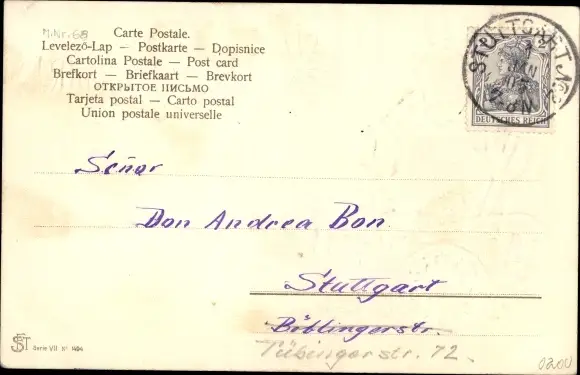 M.Nr. 68
Carte Postale.
Levelező-Lap — Postkarte — Dopisnice
Cartolina Postale — Post card
Brefkort — Briefkaart — Brevkort
ОТКРЫТОЕ ПИСЬМО
Tarjeta postal — Carto postal
Union postale universelle
STUTTGART No 2
DEUTSCHES REICH
Señor
Don Andrea Bon.
Stuttgart
Böblingerstr.
Tübingerstr. 72.
Serie VII No 1404
0200